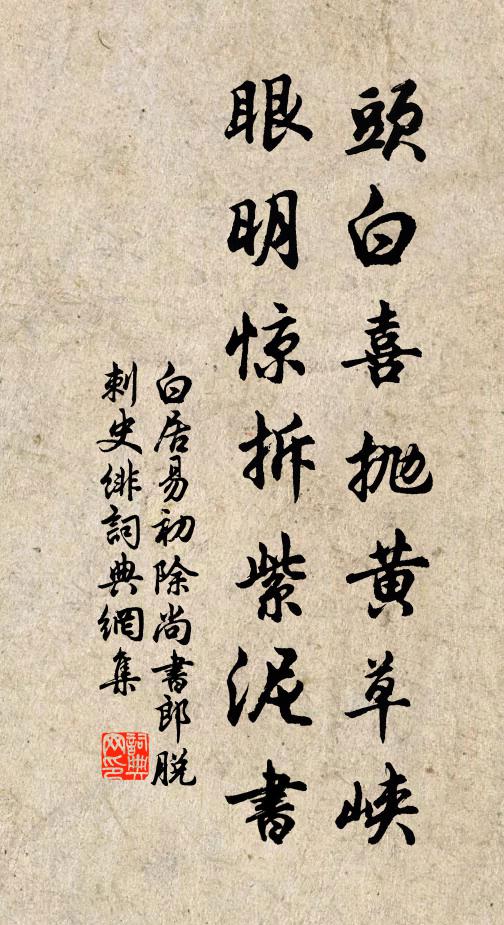 頭白喜抛黄草峡
眼明惊拆紫泥書
白居易初除尚書郎脫
刺史緋詞典網集
詞典网印